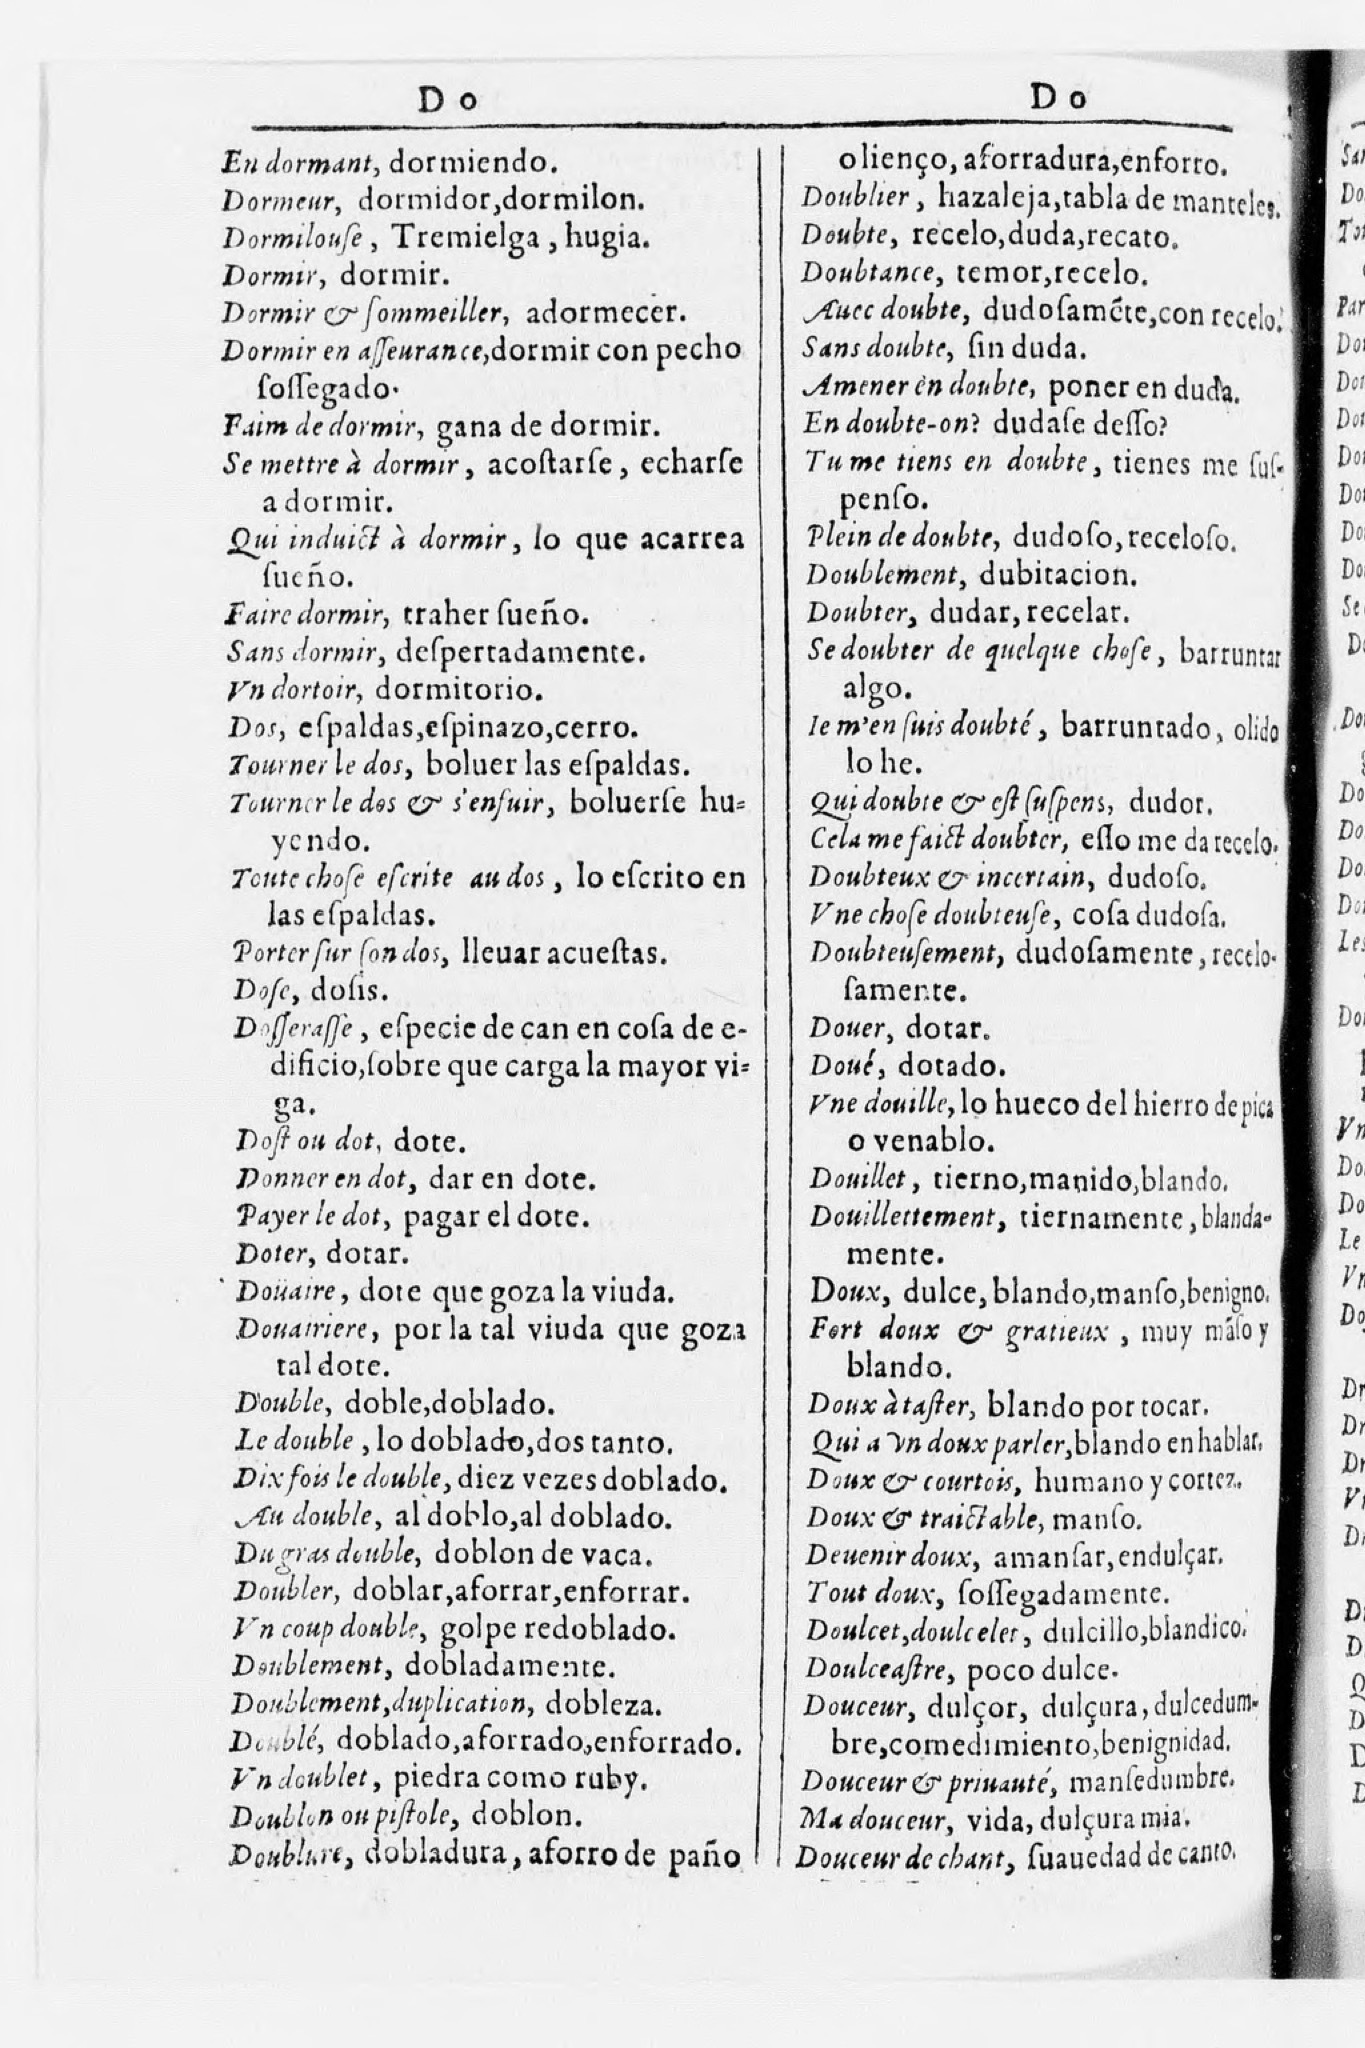 Do
En dormant, dormiendo.
Dormeur, dormidor,dormilon.
Dormilouſe, Tremielga, hugia.
Dormir, dormir.
Dormir & ſommeiller, adormecer.
Dormir en aſſeurance,dormir con pecho
ſoſſegado.
Faim de dormir, gana de dormir.
Se mettre à dormir, acoſtarſe, echarſe
a dormir.
Qui induict à dormir, lo que acarrea
ſueño.
Faire dormir, traher ſueño.
Sans dormir, deſpertadamente.
Vn dortoir, dormitorio.
Dos, eſpaldas,eſpinazo,cerro.
Tourner le dos, boluer las eſpaldas.
Tourner le dos & s'enfuir, boluerſe hu-
yendo.
Toute choſe eſcrite au dos, lo eſcrito en
las eſpaldas.
Porter ſur ſon dos, lleuar acueſtas.
Doſe, doſis.
Doſſeraſſe, eſpecie de can en coſa de e-
dificio,ſobre que carga la mayor vi-
ga.
Doſt ou dot, dote.
Donner en dot, dar en dote.
Payer le dot, pagar el dote.
Doter, dotar.
Doüaire, dote que goza la viuda.
Douairiere, por la tal viuda que goza
tal dote.
Double, doble,doblado.
Le double, lo doblado,dos tanto.
Dix fois le double, diez vezes doblado.
Au double, al doblo,al doblado.
Du gras double, doblon de vaca.
Doubler, doblar,aforrar,enforrar.
Vn coup double, golpe redoblado.
Doublement, dobladamente.
Doublement,duplication, dobleza.
Doublé, doblado,aforrado,enforrado.
Vn doublet, piedra como ruby.
Doublon ou piſtole, doblon.
Doublure, dobladura, aforro de paño
Do
o lienço, aforradura,enforro.
Doublier, hazaleja,tabla de manteles.
Doubte, recelo,duda,recato.
Doubtance, temor,recelo.
Auec doubte, dudoſamẽte,con recelo.
Sans doubte, ſin duda.
Amener en doubte, poner en duda.
En doubte-on? dudaſe deſſo?
Tu me tiens en doubte, tienes me ſuſ-
penſo.
Plein de doubte, dudoſo, receloſo.
Doublement, dubitacion.
Doubter, dudar, recelar.
Se doubter de quelque choſe, barruntar
algo.
Ie m'en ſuis doubté, barruntado, olido
lo he.
Qui doubte & eſt ſuſpens, dudor.
Cela me faict doubter, eſſo me da recelo.
Doubteux & incertain, dudoſo.
Vne choſe doubteuſe, coſa dudoſa.
Doubteuſement, dudoſamente, recelo-
ſamente.
Douer, dotar.
Doué, dotado.
Vne douille, lo hueco del hierro de pica
o venablo.
Douillet, tierno,manido,blando.
Douillettement, tiernamente, blanda-
mente.
Doux, dulce, blando,manſo,benigno.
Fort doux & gratieux, muy mãſo y
blando.
Doux à taſter, blando por tocar.
Qui a vn doux parler,blando en hablar.
Doux & courtois, humano y cortez.
Doux & traictable, manſo.
Deuenir doux, amanſar,endulçar.
Tout doux, ſoſſegadamente.
Doulcet,doulcelet, dulcillo,blandico.
Doulceaſtre, poco dulce.
Douceur, dulçor, dulçura, dulcedum-
bre,comedimiento,benignidad.
Douceur & priuauté, manſedumbre.
Ma douceur, vida, dulçura mia.
Douceur de chant, ſuauedad de canto.